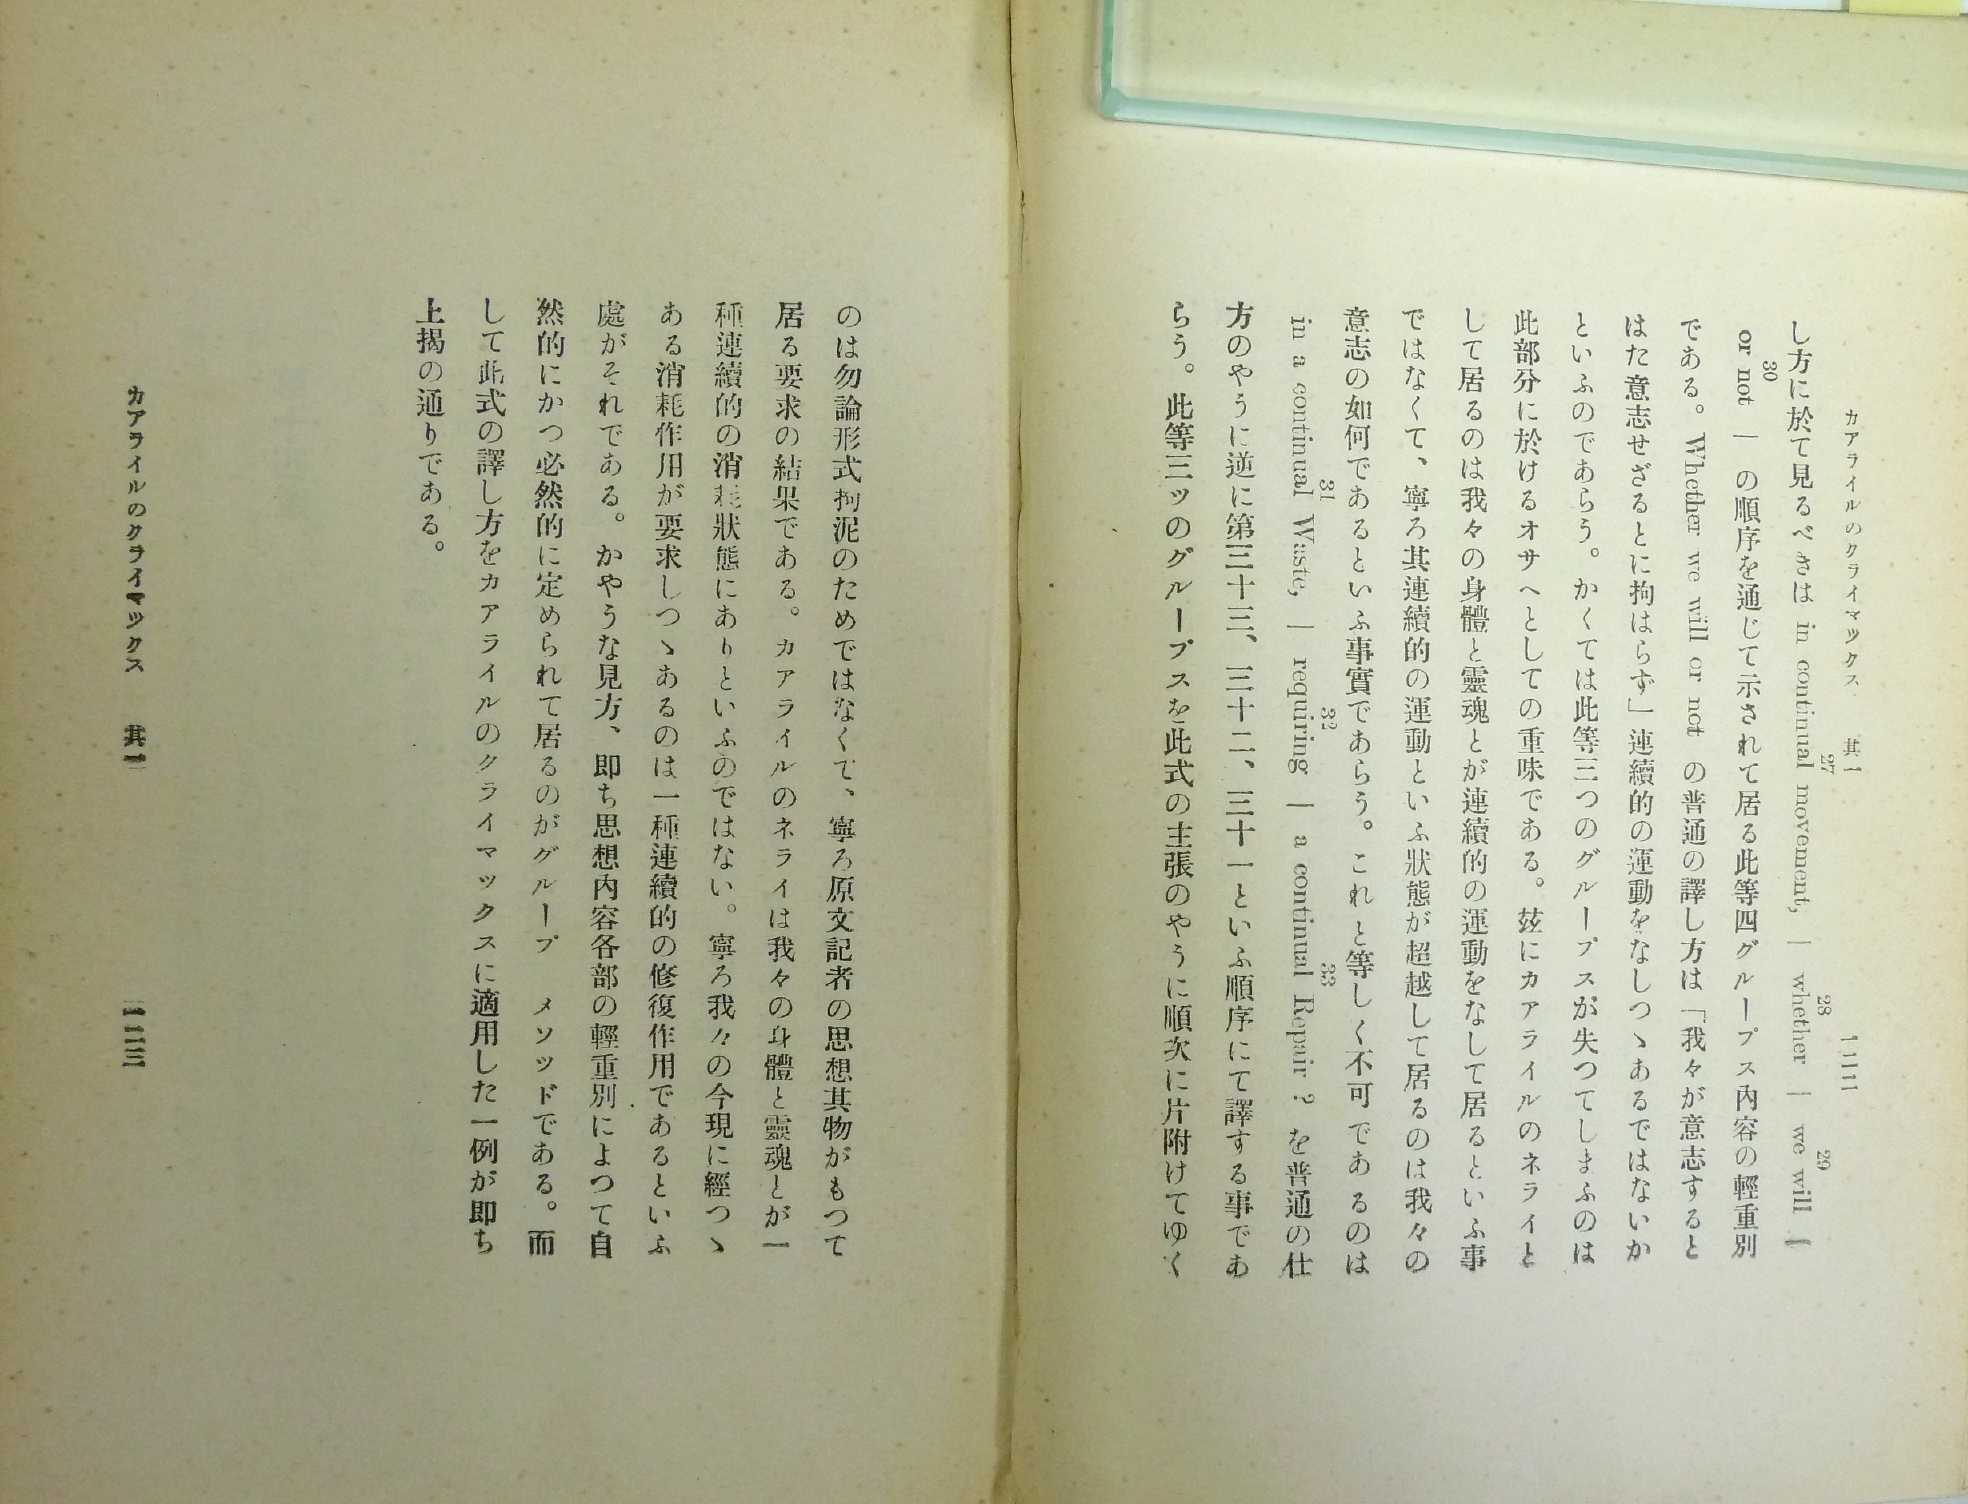 カアライルのクライマックス 其一 一二二
し方に於て見るべきは in continual movement, — whether — we will —
27 28 29
or not — の順序を通じて示されて居る此等四グループス內容の輕重別
30
である。Whether we will or not の普通の譯し方は「我々が意志すると
はた意志せざるとに拘はらず」連續的の運動をなしつゝあるではないか
といふのであらう。かくては此等三つのグループスが失つてしまふのは
此部分に於けるオサヘとしての重味である。玆にカアライルのネライと
して居るのは我々の身體と靈魂とが連續的の運動をなして居るといふ事
ではなくて、寧ろ其連續的の運動といふ狀態が超越して居るのは我々の
意志の如何であるといふ事實であらう。これと等しく不可であるのは
in a continual Waste, — requiring — a continual Repair ? を普通の仕
31 32 33
方のやうに逆に第三十三、三十二、三十一といふ順序にて譯する事であ
らう。此等三ツのグループスを此式の主張のやうに順次に片附けてゆく
のは勿論形式拘泥のためではなくて、寧ろ原文記者の思想其物がもつて
居る要求の結果である。カアライルのネライは我々の身體と靈魂とが一
種連續的の消耗狀態にありといふのではない。寧ろ我々の今現に經つゝ
ある消耗作用が要求しつゝあるのは一種連續的の修復作用であるといふ
處がそれである。かやうな見方、卽ち思想內容各部の輕重別によつて自
然的にかつ必然的に定められて居るのがグループ メソッドである。而
して此式の譯し方をカアライルのクライマックスに適用した一例が卽ち
上揭の通りである。
カアライルのクライマックス 其一 一二三